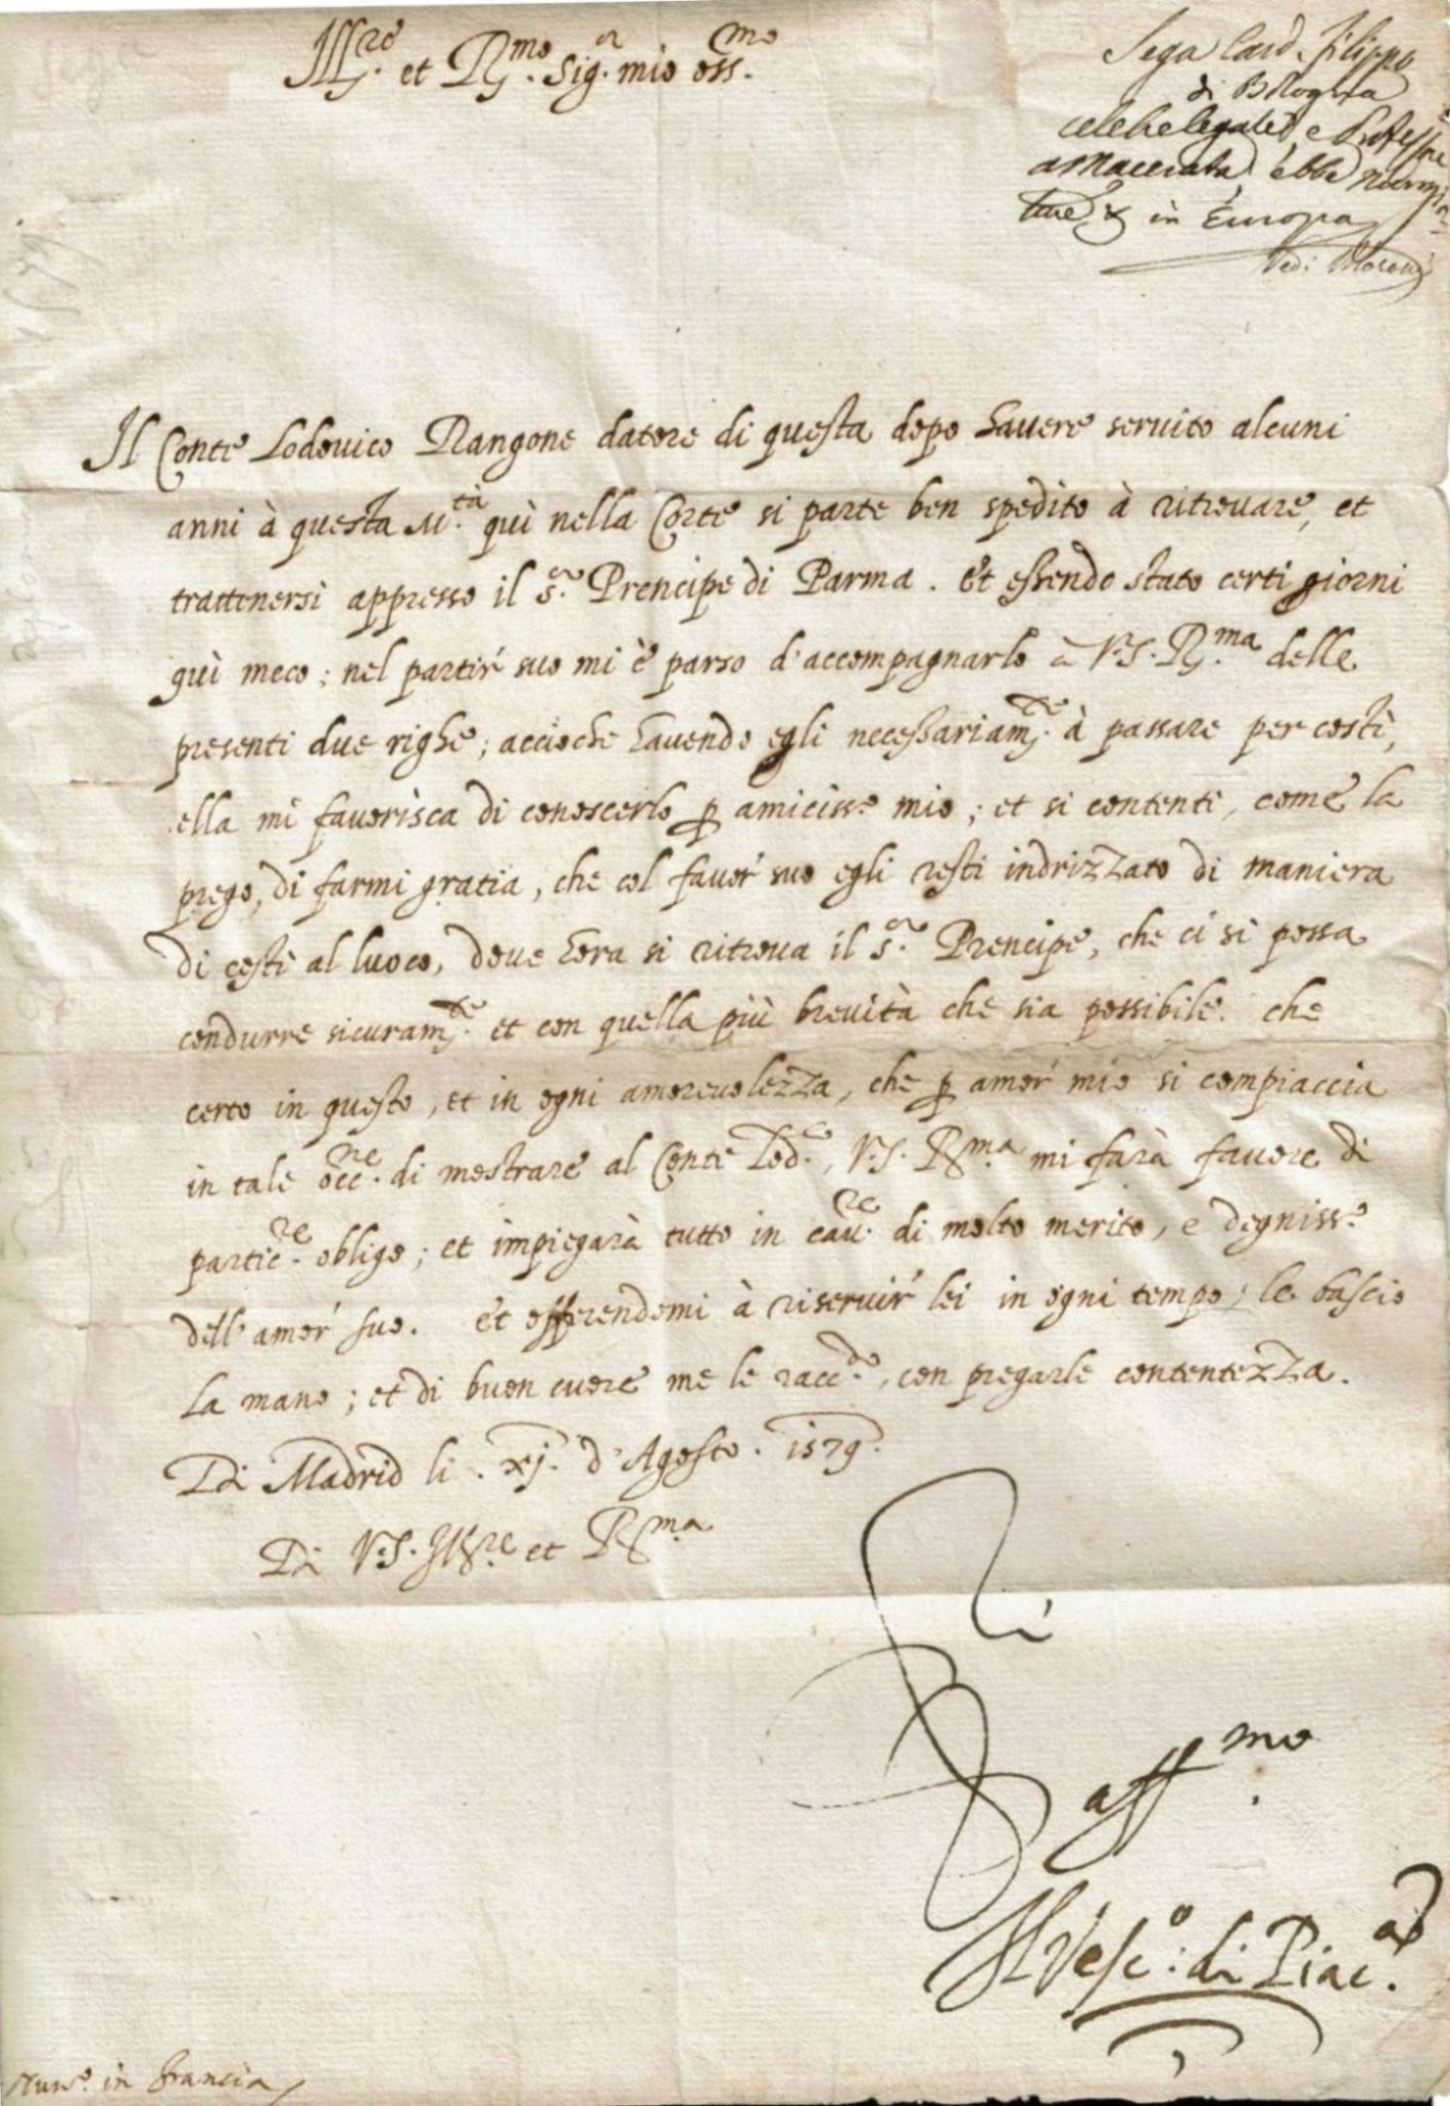 Ill.re et R.mo Sig.r mio oss.mo
Sega Card. Filippo
di Bologna
celebre legale, e Professore
a Macerata, ebbe
in Europa
Vedi
Il Conte Lodovico Rangone datore di questa dopo havere servito alcuni
anni à questa M.tà quì nella Corte si parte ben spedito à ritrovare, et
trattenersi appresso il S.r Prencipe di Parma. Et essendo stato certi giorni
quì meco; nel partir suo mi è parso d'accompagnarlo à V.S. R.ma delle
presenti due righe; acciochè havendo egli necessariam.te à passare per costì,
ella mi favorisca di conoscerlo p amiciss.o mio; et si contenti, come la
prego, di farmi gratia, che col favor suo egli resti indrizzato di maniera
di costì al luoco, dove hora si ritrova il S.r Prencipe, che ci si possa
condurre sicuram.te et con quella più brevità che sia possibile. che
certo in questo, et in ogni amorevolezza, che p amor mio si compiaccia
in tale occ.ne di mostrare al Conte Lod.co, V.S. R.ma mi farà favore di
partic.re obligo; et impiegarà tutto in cav.re di molto merito, e degniss.o
dell'amor suo. Et offerendomi à riservir lei in ogni tempo; le bascio
la mano; et di buon cuore me le racc.do, con pregarle contentezza.
Di Madrid li .xj. d'Agosto. 1579.
Di V.S. Ill.re et R.ma
aff.mo
Il Vesc.o di Piac.a
Nun.o in Francia